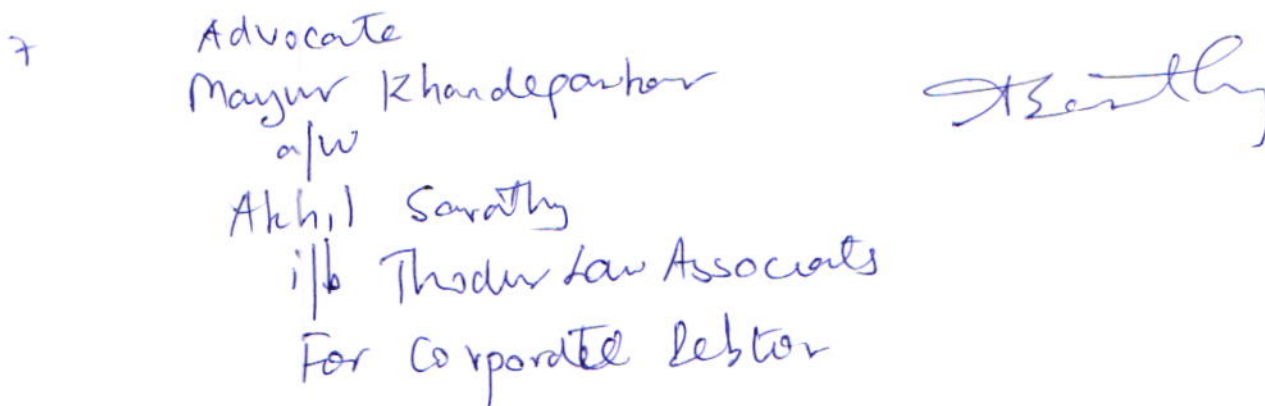 7 Advocate
Mayur Khandeparkar
a/w
Akhil Sarathy
i/b Thodur Law Associats
For Corporate Debtor